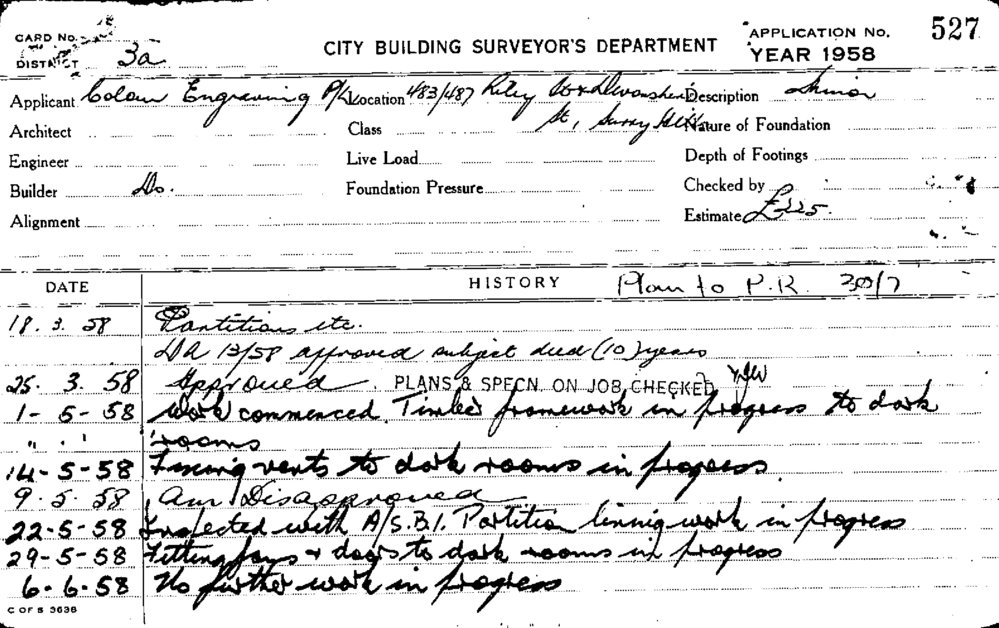 CARD No.
DISTRICT 3a
CITY BUILDING SURVEYOR'S DEPARTMENT
APPLICATION No. 527
YEAR 1958
Applicant Colour Engraving P/L Location 483/487 Riley St & Devonshire Description Minor
Architect Class St, Surry Hills Nature of Foundation
Engineer Live Load Depth of Footings
Builder Do. Foundation Pressure Checked by
Alignment Estimate £225.
DATE HISTORY Plan to P.R. 30/7
18. 3. 58 Partitions etc.
DA 13/58 approved subject deed (10) years
25. 3. 58 Approved. PLANS & SPECN. ON JOB CHECKED
1-5-58 Work commenced. Timber framework in progress to dark
" . ' rooms
14-5-58 Fixing vents to dark rooms in progress.
9. 5. 58 Am Disapproved
22-5-58 Inspected with A/S.B.I. Partition lining work in progress
29-5-58 Fitting fans & doors to dark rooms in progress
6. 6. 58 No further work in progress
C OF S 3636